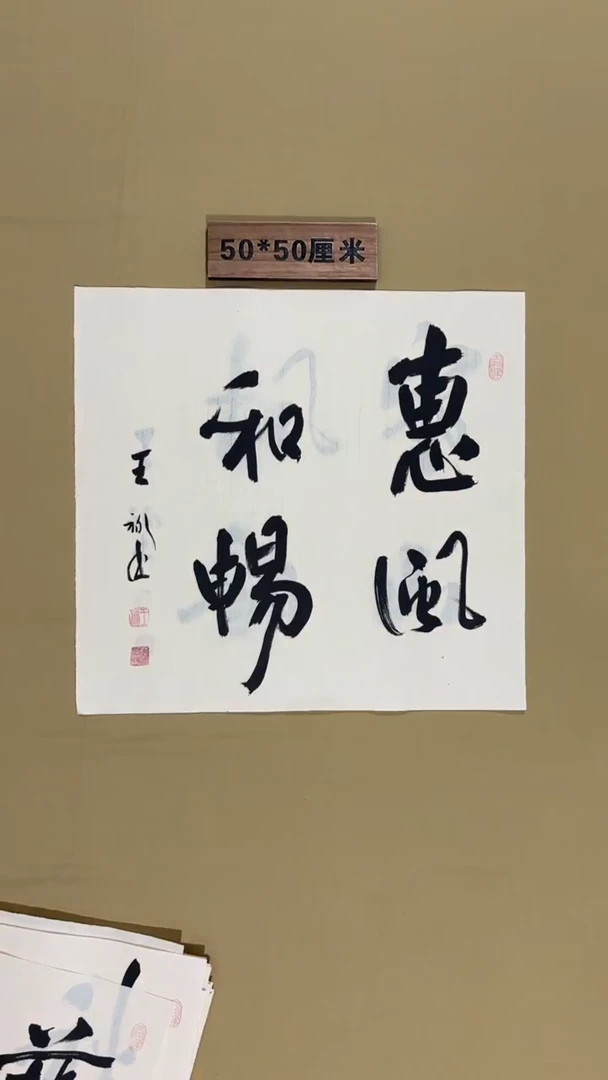 50*50厘米
惠風
和暢
王